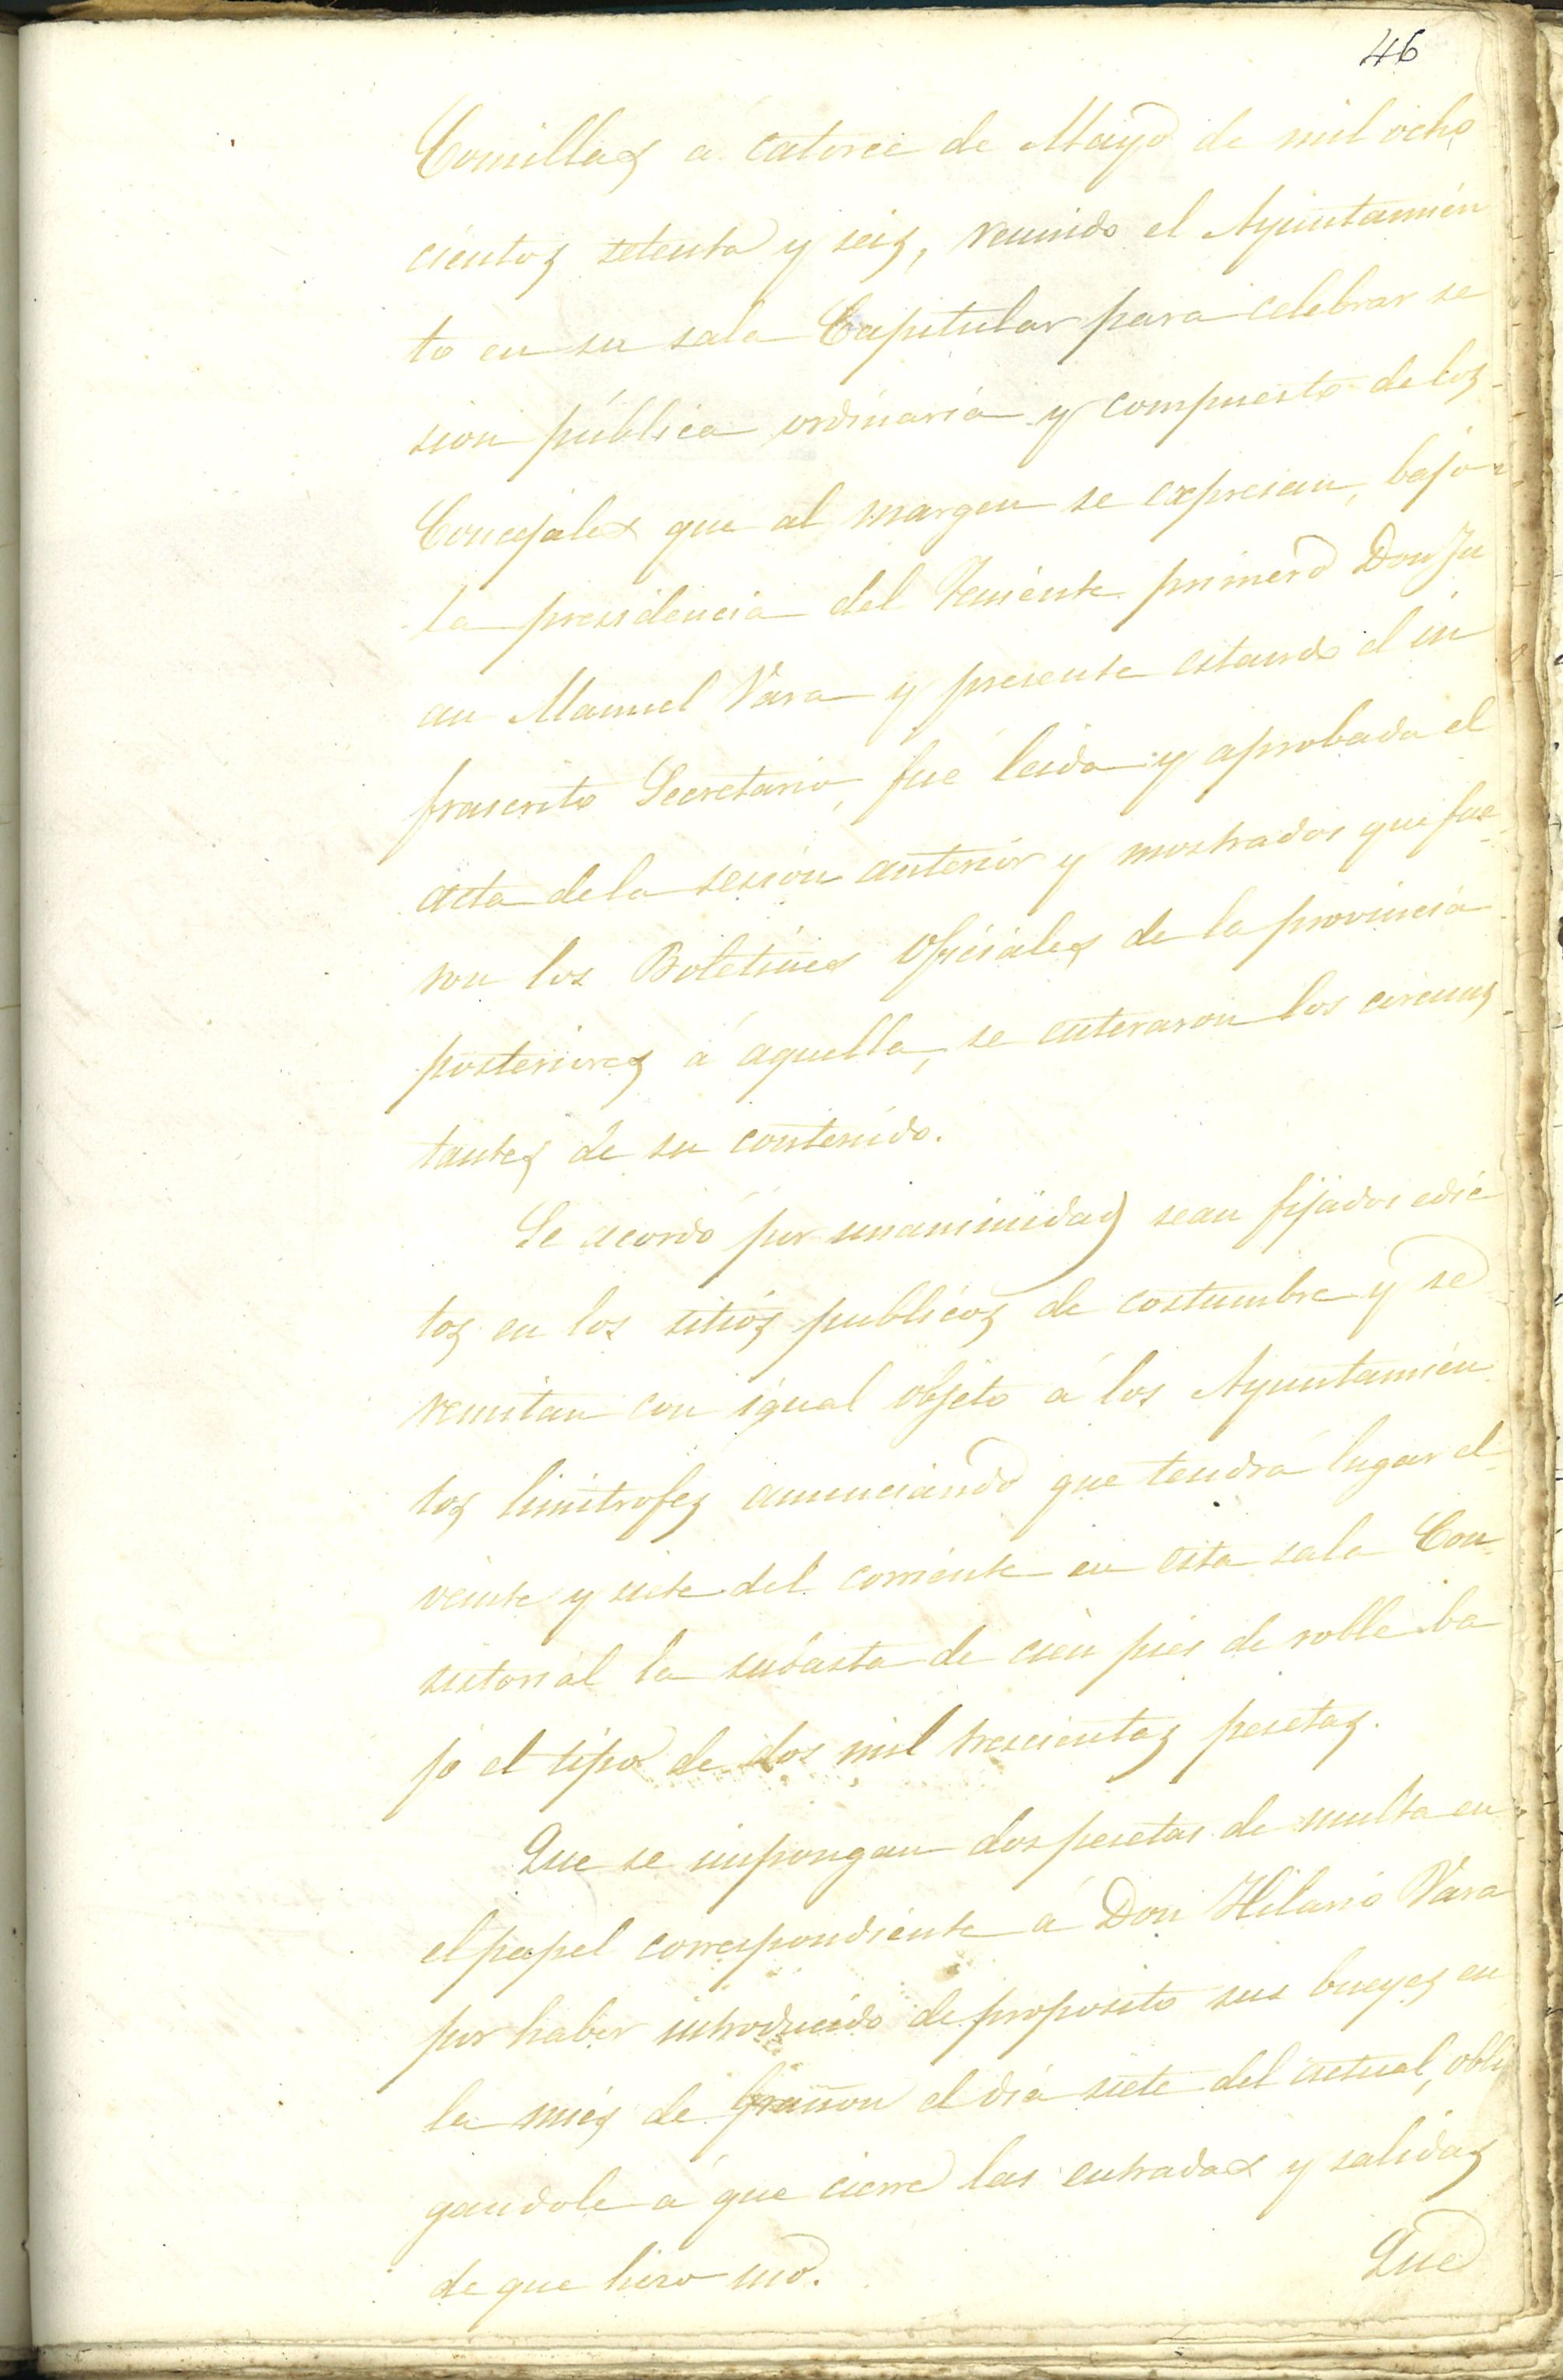 46
Comillas á catorce de Mayo de mil ocho
cientos setenta y seis, reunido el Ayuntamien
to en su sala Capitular para celebrar se
sion pública ordinaria y compuesto de los
Concejales que al margen se expresan, bajo
la presidencia del Teniente primero Don Ju
an Manuel Vara y presente estando el in
frascrito Secretario, fue leida y aprobada el
acta de la sesion anterior y mostrados que fue
ron los Boletines Oficiales de la provincia
posteriores á aquella, se enteraron los circuns
tantes de su contenido.
Se acordó por unanimidad sean fijados edic
tos en los sitios publicos de costumbre y se
remitan con igual objeto á los Ayuntamien
tos limitrofes anunciando que tendrá lugar el
veinte y siete del corriente en esta sala Con
sistorial la subasta de cien pies de roble ba
jo el tipo de dos mil trescientas pesetas.
Que se impongan dos pesetas de multa en
el papel correspondiente á Don Hilario Vara
por haber introducido de proposito sus bueyes en
la mies de el dia siete del actual, obli
gandole á que cierre las entradas y salidas
de que hizo uso.
Que